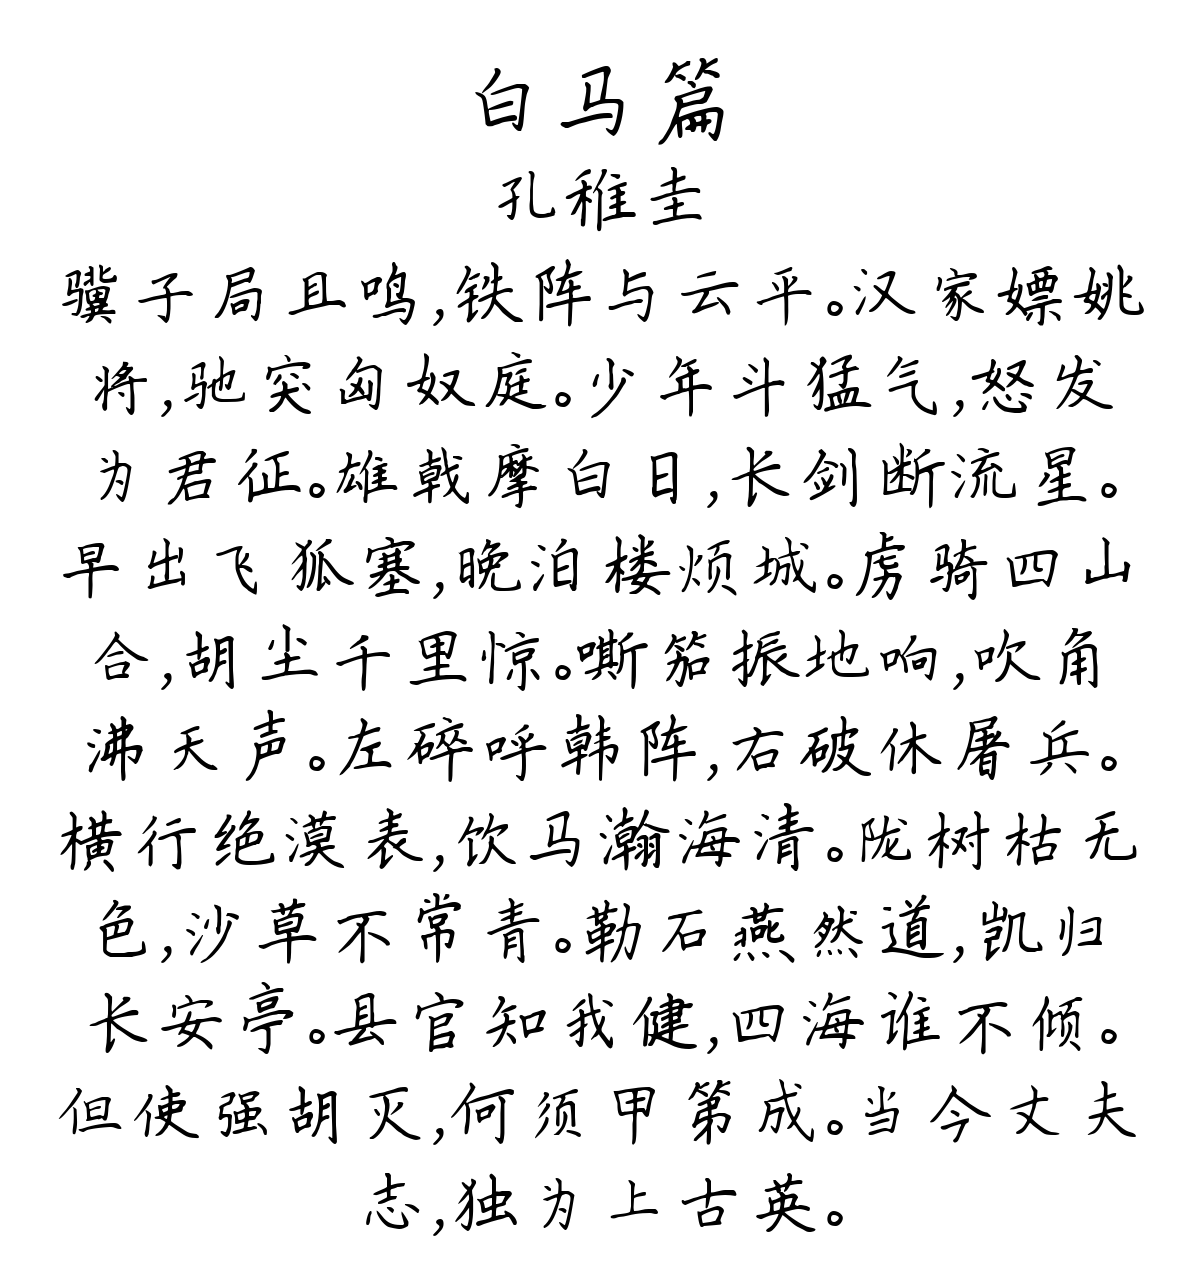 白马篇
孔稚圭
骥子局且鸣,铁阵与云平。汉家嫖姚
将,驰突匈奴庭。少年斗猛气,怒发
为君征。雄戟摩白日,长剑断流星。
早出飞狐塞,晚泊楼烦城。虏骑四山
合,胡尘千里惊。嘶笳振地响,吹角
沸天声。左碎呼韩阵,右破休屠兵。
横行绝漠表,饮马瀚海清。陇树枯无
色,沙草不常青。勒石燕然道,凯归
长安亭。县官知我健,四海谁不倾。
但使强胡灭,何须甲第成。当今丈夫
志,独为上古英。